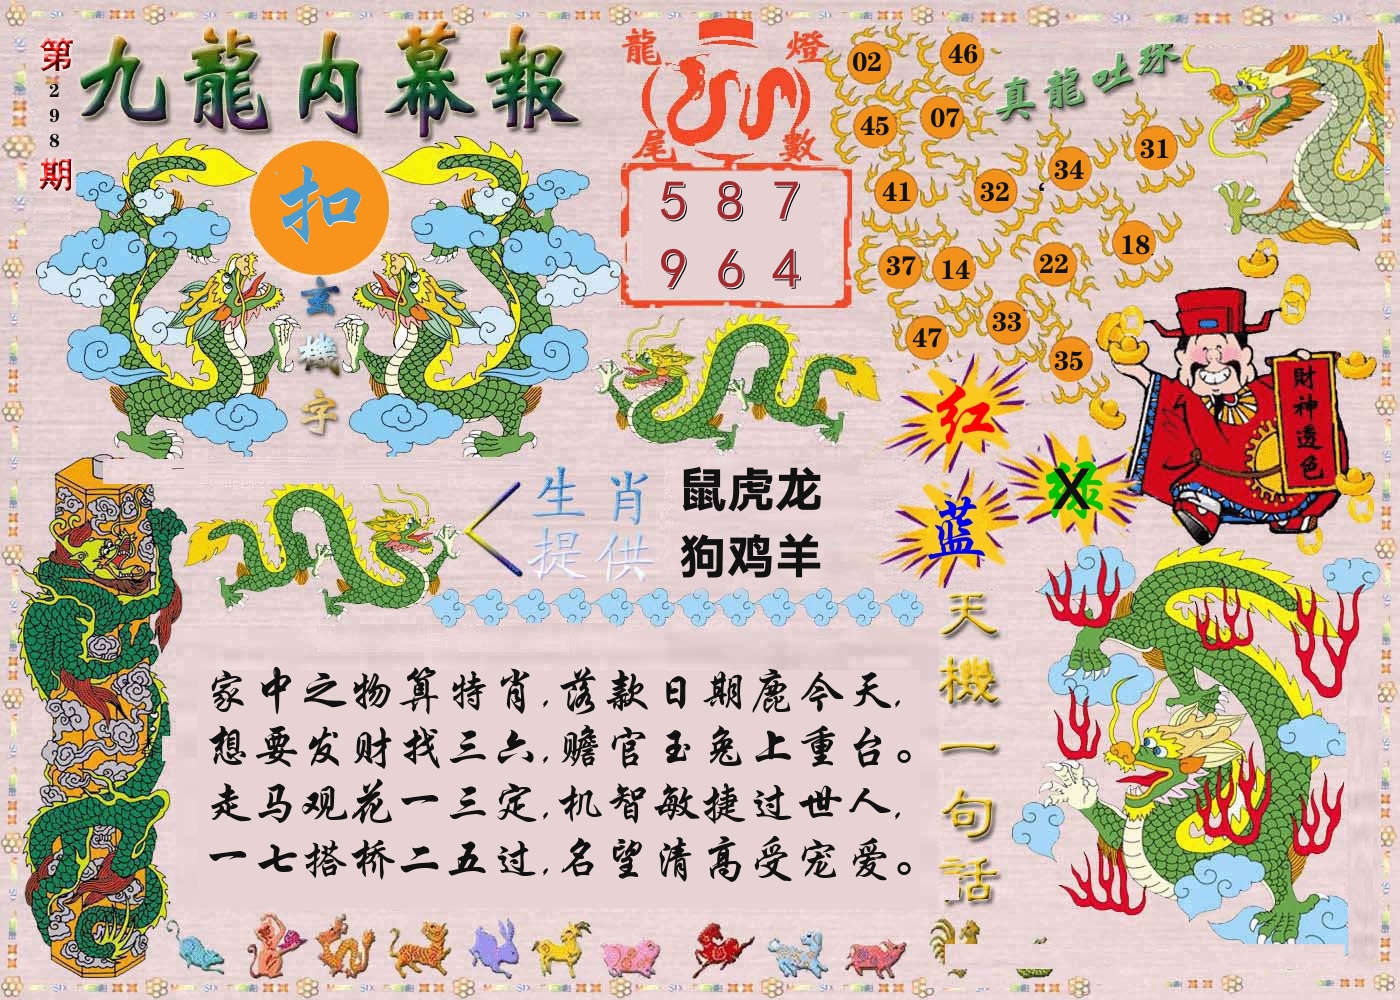 第298期
九龍内幕報
扣
玄機字
龍燈
尾數
5 8 7
9 6 4
02
46
45
07
41
32
34
31
37
14
22
18
47
33
35
真龍吐珠
財神透色
红
绿
X
蓝
生肖
提供
鼠虎龙
狗鸡羊
家中之物算特肖,落款日期鹿今天,
想要发财找三六,赡官玉兔上重台。
走马观花一三定,机智敏捷过世人,
一七搭桥二五过,名望清高受宠爱。
天機一句話